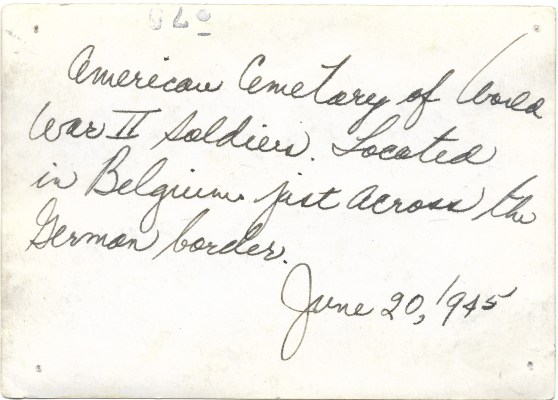 American Cemetary of World
War II Soldiers. Located
in Belgium just across the
German border.
June 20, 1945